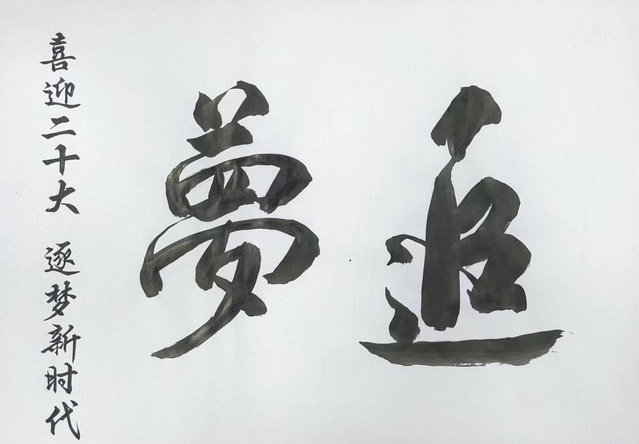 追夢
喜迎二十大 逐梦新时代